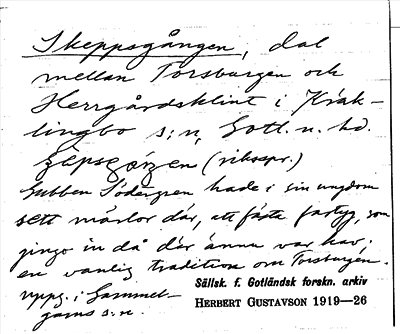 Skeppsgången, dal
mellan Torsburgen och
Herrgårdsklint i Kräk-
lingbo s:n, Gotl. n. hd.
(riksspr.)
Gubben Södergren hade i sin ungdom
sett märlor där, att fästa fartyg, som
gingo in då där ännu var hav,
en vanlig tradition om Torsburgen.
uppg. i Gammel-
garns s:n.
Sällsk. f. Gotländsk forskn. arkiv
HERBERT GUSTAVSON 1919—26